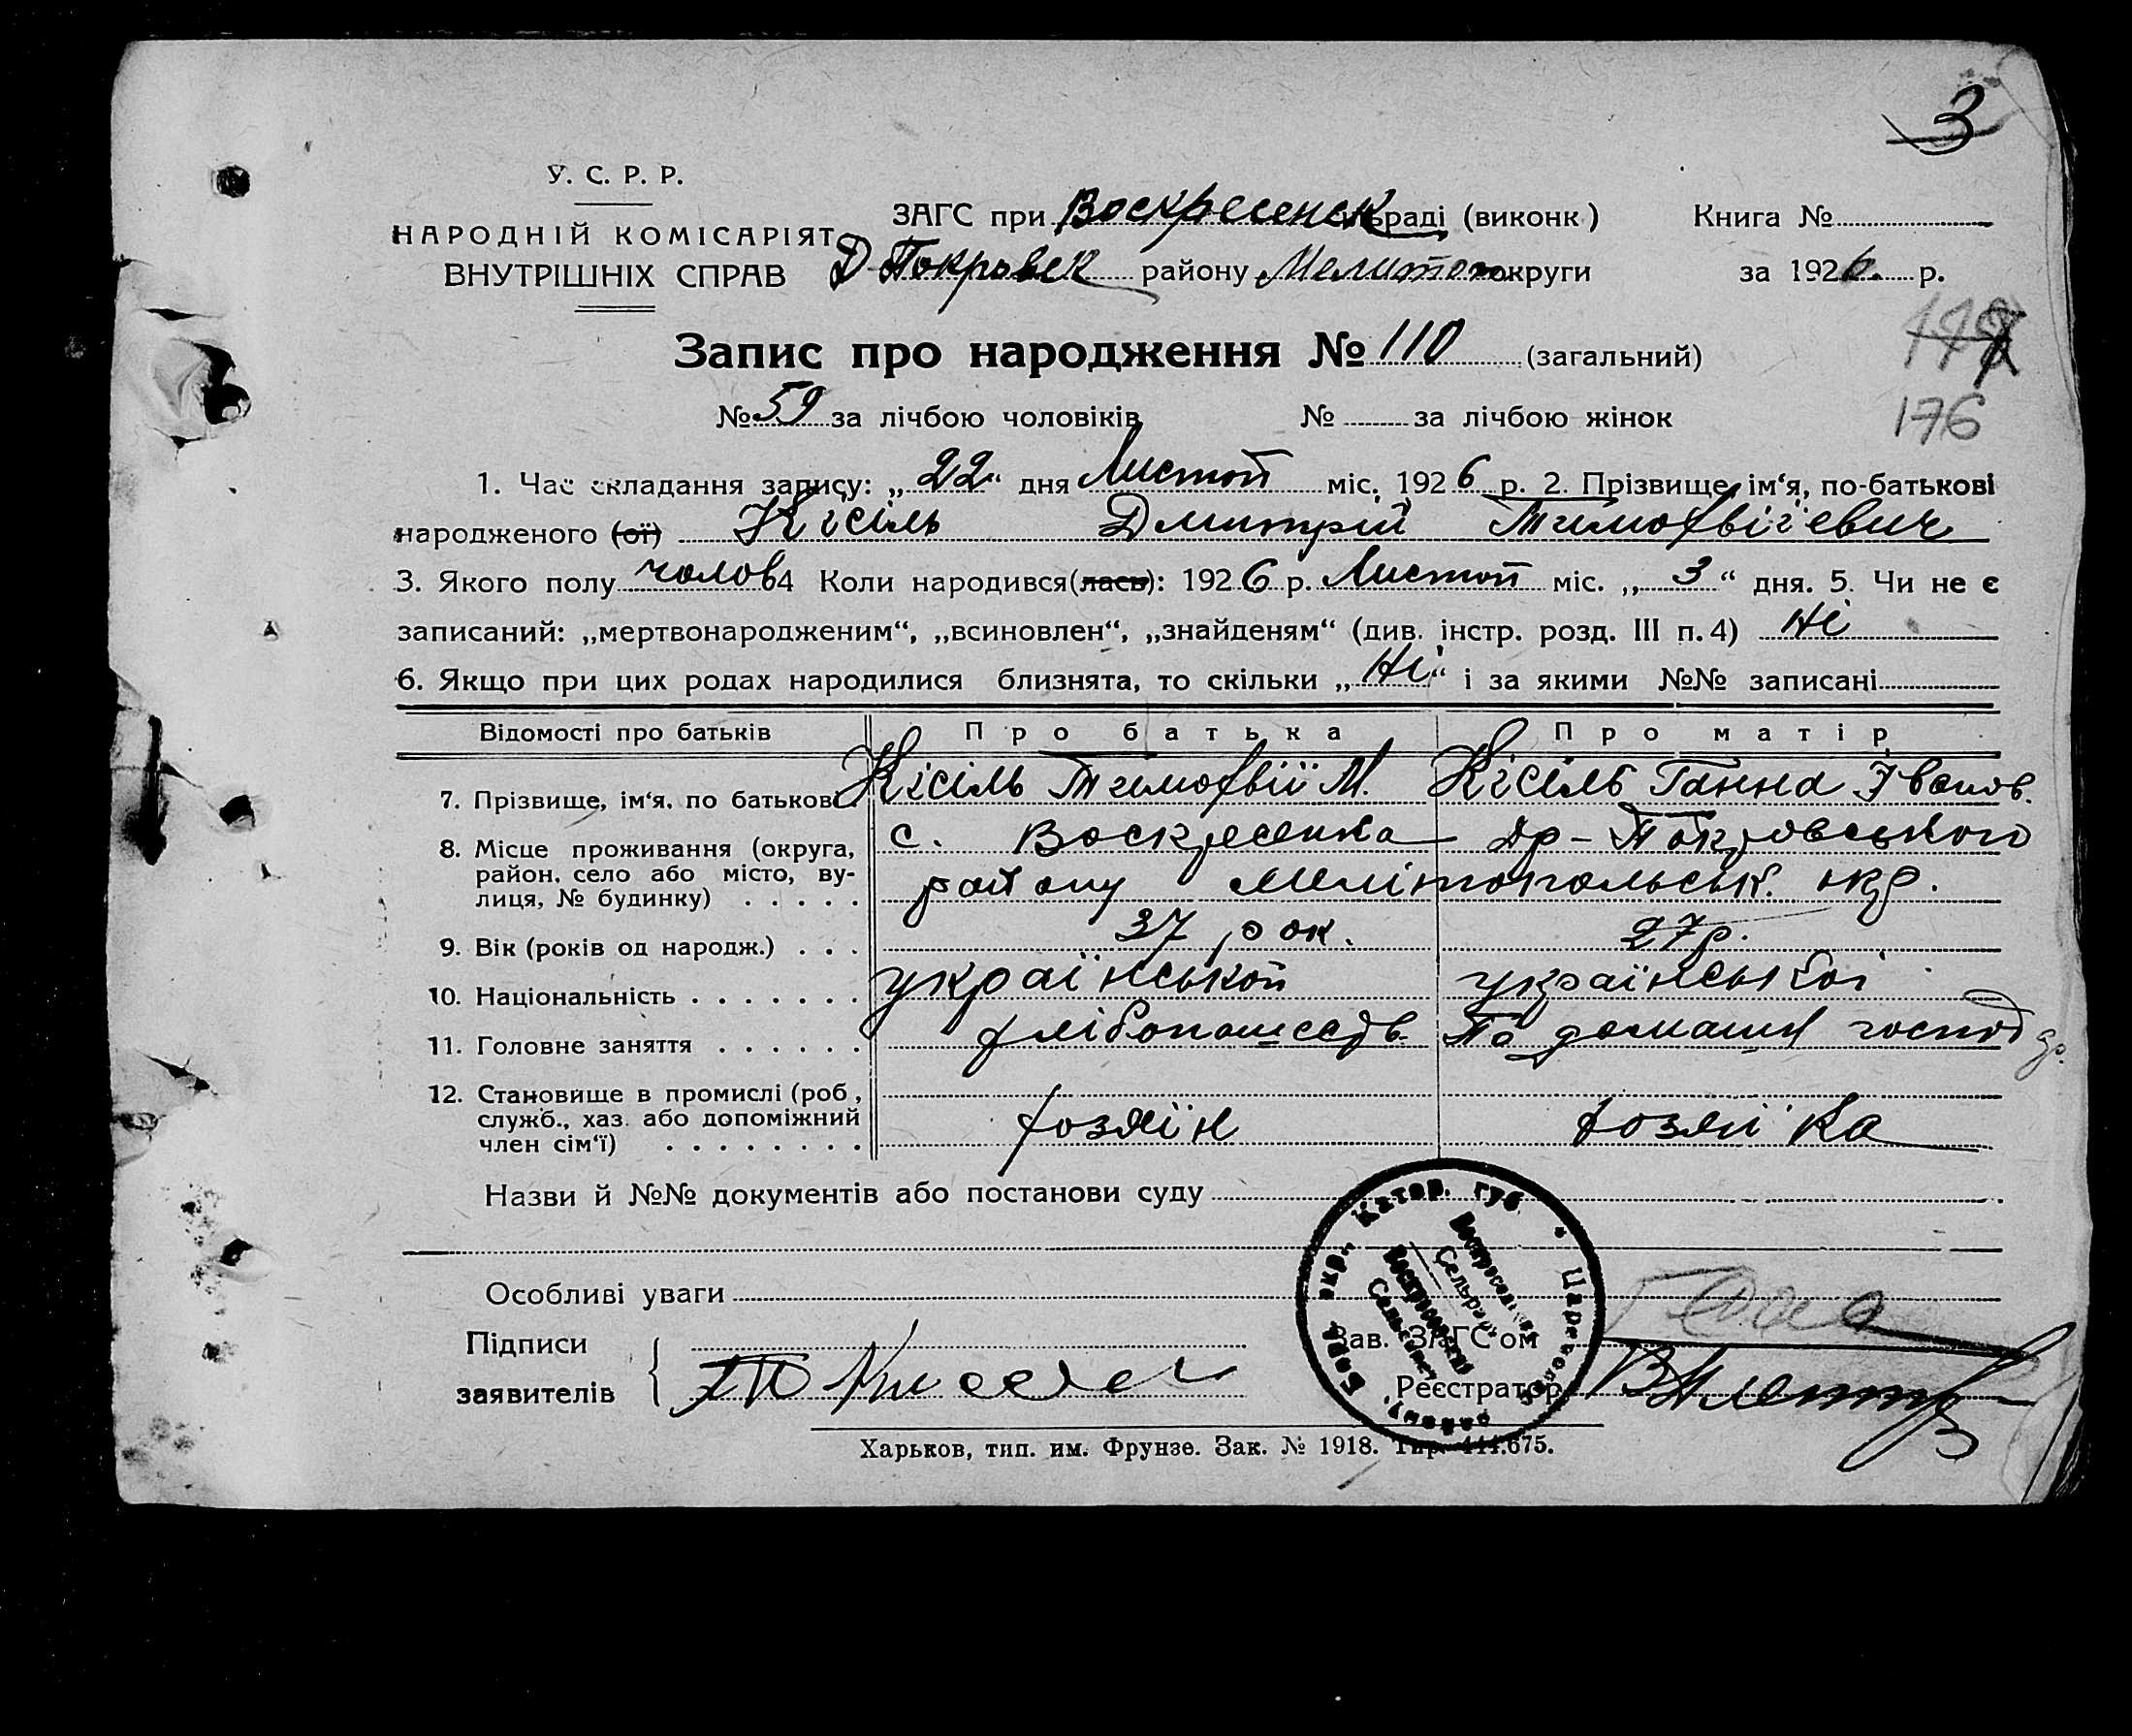 3
У. С. Р. Р.
НАРОДНІЙ КОМІСАРІЯТ
ВНУТРІШНІХ СПРАВ
ЗАГС при Воскресенск сільраді (виконк)
Книга №
Д-Покровск району Мелитоп округи
за 1926. р.
Запис про народження № 110 (загальний)
176
№ 59 за лічбою чоловіків № за лічбою жінок
1. Час складання запису: „22“ дня Листоп міс. 1926 р. 2. Прізвище, ім‘я, по-батькові
народженого (ої) Кісіль Дмитрій Тимофвіїевич
3. Якого полу чолов 4 Коли народився(лась): 1926 р. Листоп міс. „3“ дня. 5. Чи не є
записаний: „мертвонародженим“, „всиновлен“, „знайденям“ (див. інстр. розд. III п. 4) Ні
6. Якщо при цих родах народилися близнята, то скільки „Ні“ і за якими №№ записані
Відомості про батьків Про батька Про матір
7. Прізвище, ім‘я, по батькові Кісіль Тимофвій М. Кісіль Ганна Іванов.
8. Місце проживання (округа, с. Воскресенка Др-Покровського
район, село або місто, ву-
лиця, № будинку) району Мелітопольськ. окр.
9. Вік (років од народж.) 37 рок. 27 р.
10. Національність української української
11. Головне заняття хлібопашеств. По домашн господ др.
12. Становище в промислі (роб.,
служб., хаз. або допоміжний хозяїн хозяйка
член сім‘ї)
Назви й №№ документів або постанови суду
Катер. губ. * Царекон
Бердя. окр.
Воскресенська
Сельрада
Воскресенский
Сельсовет
Особливі уваги
Підписи Зав. ЗАГС‘ом
заявителів Реєстратор
Харьков, тип. им. Фрунзе. Зак. № 1918. Тир. 444.675.